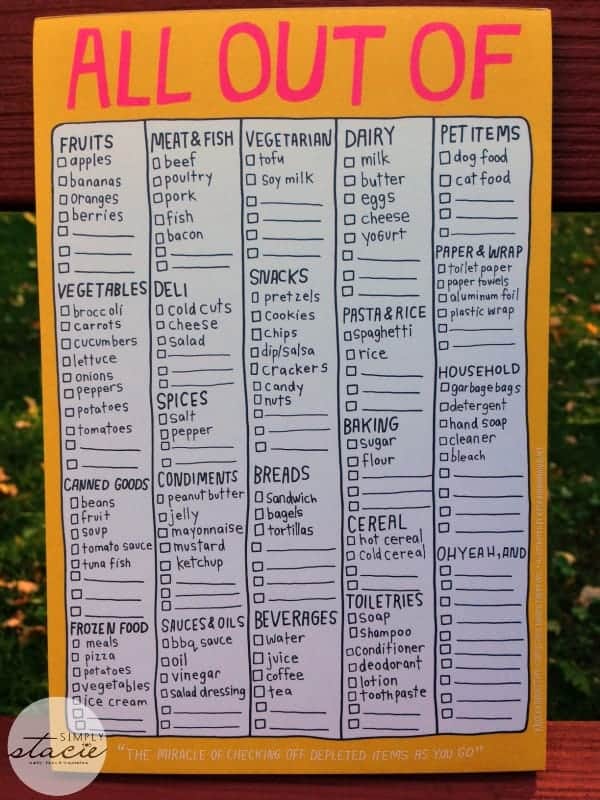 ALL OUT OF
FRUITS
apples
bananas
oranges
berries
VEGETABLES
broccoli
carrots
cucumbers
lettuce
onions
peppers
potatoes
tomatoes
CANNED GOODS
beans
fruit
soup
tomato sauce
tuna fish
FROZEN FOOD
meals
pizza
potatoes
vegetables
ice cream
MEAT & FISH
beef
poultry
pork
fish
bacon
DELI
cold cuts
cheese
salad
SPICES
salt
pepper
CONDIMENTS
peanut butter
jelly
mayonnaise
mustard
ketchup
SAUCES & OILS
bbq sauce
oil
vinegar
salad dressing
VEGETARIAN
tofu
soy milk
SNACKS
pretzels
cookies
chips
dip/salsa
crackers
candy
nuts
BREADS
sandwich
bagels
tortillas
BEVERAGES
water
juice
coffee
tea
DAIRY
milk
butter
eggs
cheese
yogurt
PASTA & RICE
spaghetti
rice
BAKING
sugar
flour
CEREAL
hot cereal
cold cereal
TOILETRIES
soap
shampoo
conditioner
deodorant
lotion
toothpaste
PET ITEMS
dog food
cat food
PAPER & WRAP
toilet paper
paper towels
aluminum foil
plastic wrap
HOUSEHOLD
garbage bags
detergent
hand soap
cleaner
bleach
OH YEAH, AND
"THE MIRACLE OF CHECKING OFF DEPLETED ITEMS AS YOU GO"
SIMPLY
stacie